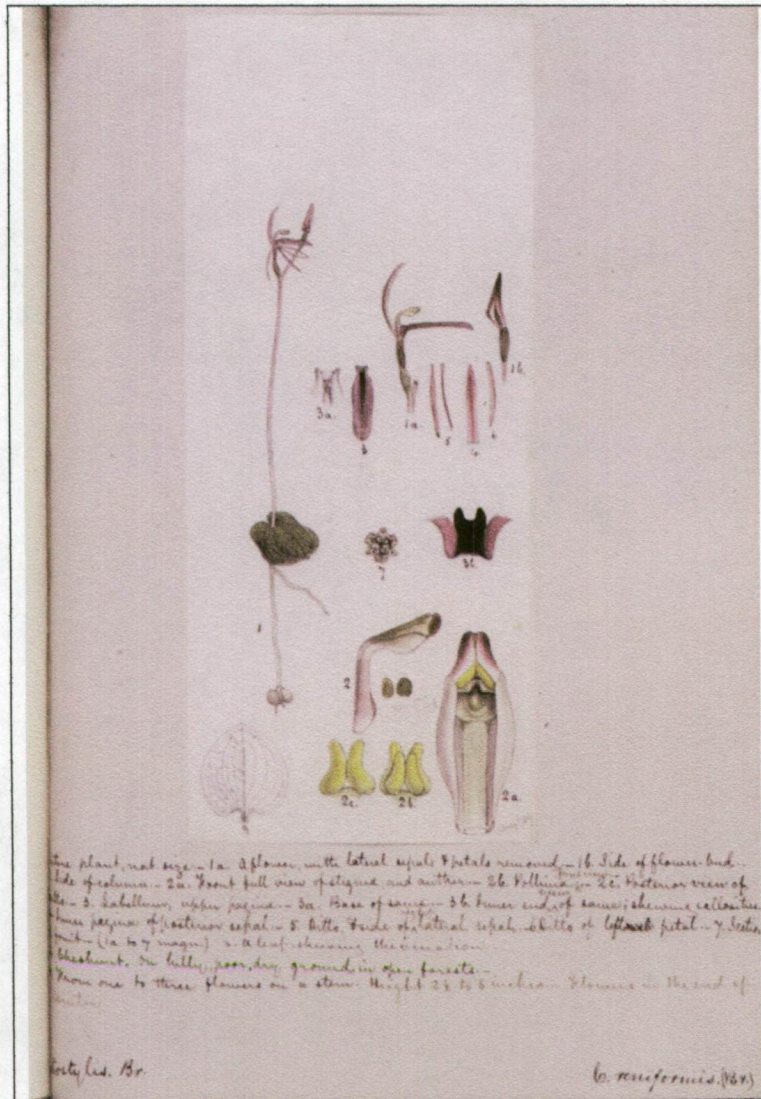 1b.
3a.
3
1a
5
4
6
7
3b.
1
2
2c.
2b.
2a.
tire plant, nat. size – 1a. A flower, with lateral sepals & petals removed – 1b. Side of flower-bud –
Side of column – 2a. Front full view of stigma and anther – 2b. Pollinia – 2c. Posterior view of
3. Labellum, upper pagina – 3a. Base of same – 3b. Inner end of same; shewing callosities
Inner pagina of posterior sepal – 5. Ditto & side of lateral sepal – 6 Ditto of petal – 7. Section
fruit – (1a to 7 magn) a leaf shewing the venation
Cheshunt. On hilly, poor, dry ground in open forests –
From one to three flowers on a stem. Height 2½ to 6 inches – Flowers in the end of
winter
ostylis. Br.
C. reniformis. (Br.)